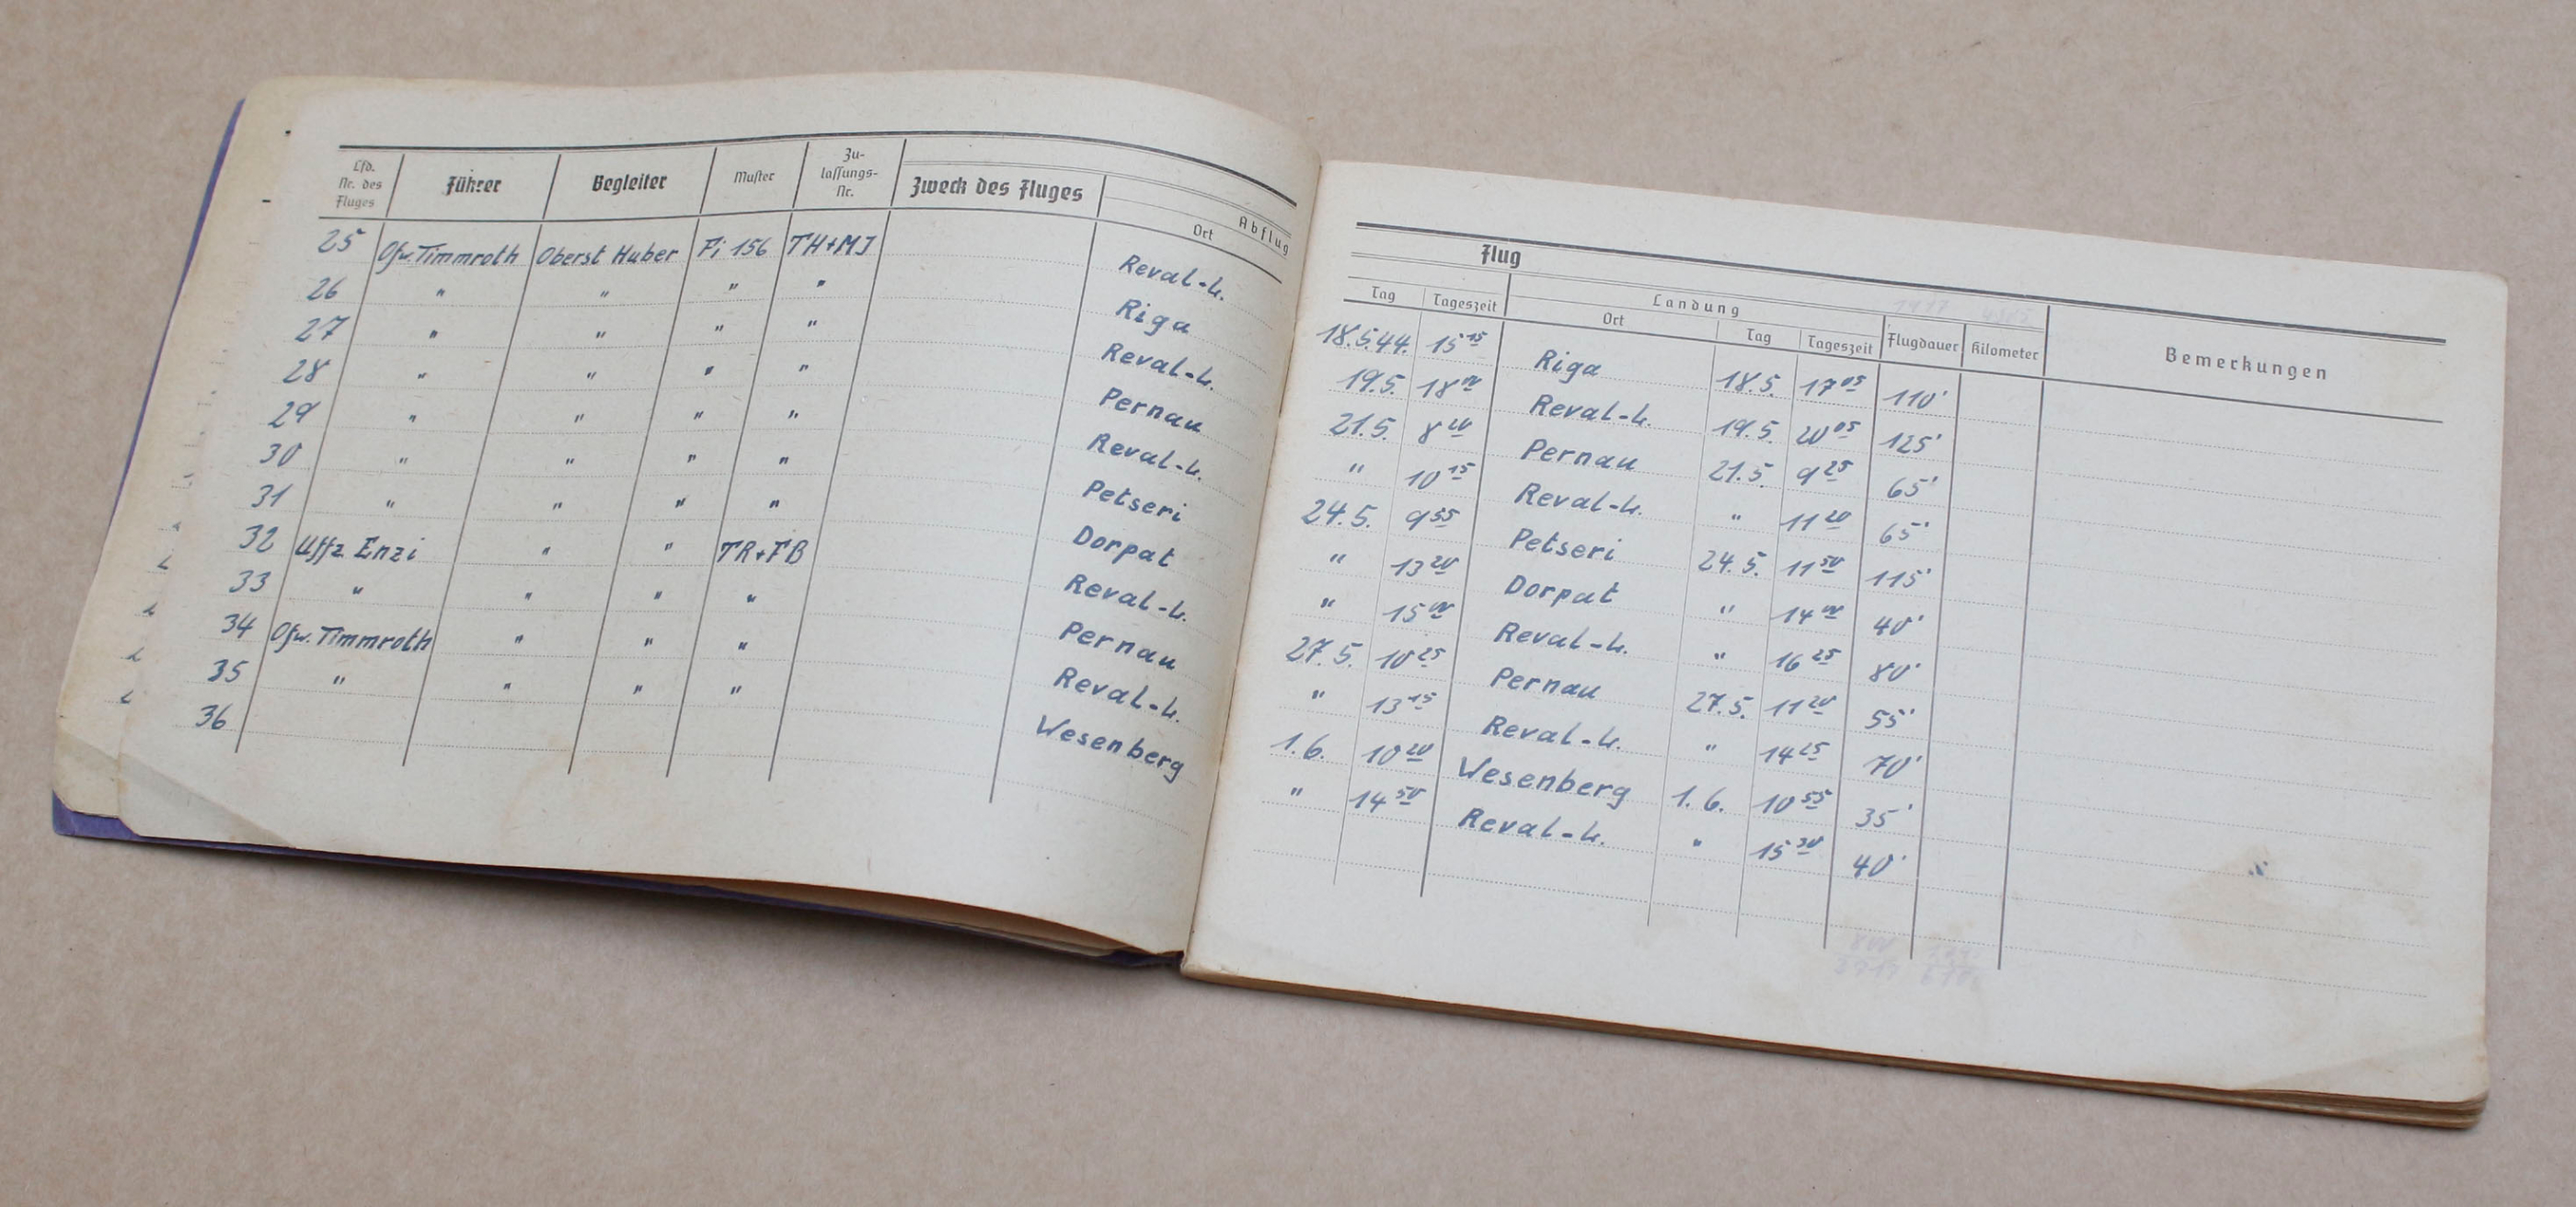 Lfd. Nr. des Fluges Führer Begleiter Muster Zu-lassungs-Nr. Zweck des Fluges Abflug Ort
25 Ofw. Timmroth Oberst Huber Fi 156 TH+MJ Reval-L.
26 " " " " Riga
27 " " " " Reval-L.
28 " " " " Pernau
29 " " " " Reval-L.
30 " " " " Petseri
31 " " " " Dorpat
32 Uffz Enzi " " TR+FB Reval-L.
33 " " " " Pernau
34 Ofw. Timmroth " " " Reval-L.
35 " " " " Wesenberg
36
Flug
Tag Tageszeit Landung Ort Tag Tageszeit Flugdauer Kilometer Bemerkungen
18.5.44. 15 15 Riga 18.5. 17 05 110'
19.5. 18 00 Reval-L. 19.5. 20 05 125'
21.5. 8 20 Pernau 21.5. 9 25 65'
" 10 15 Reval-L. " 11 20 65'
24.5. 9 55 Petseri 24.5. 11 50 115'
" 13 20 Dorpat " 14 00 40'
" 15 00 Reval-L. " 16 25 80'
27.5. 10 25 Pernau 27.5. 11 20 55'
" 13 15 Reval-L. " 14 25 70'
1.6. 10 20 Wesenberg 1.6. 10 55 35'
" 14 50 Reval-L. " 15 30 40'